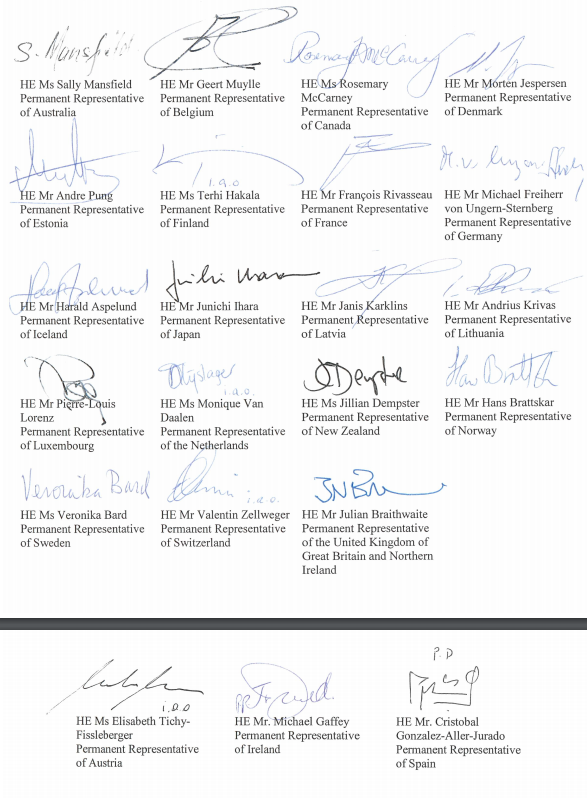 S. Mansfield
HE Ms Sally Mansfield
Permanent Representative
of Australia
HE Mr Geert Muylle
Permanent Representative
of Belgium
Rosemary McCarney
HE Ms Rosemary
McCarney
Permanent Representative
of Canada
HE Mr Morten Jespersen
Permanent Representative
of Denmark
HE Mr Andre Pung
Permanent Representative
of Estonia
i.a.o
HE Ms Terhi Hakala
Permanent Representative
of Finland
HE Mr François Rivasseau
Permanent Representative
of France
HE Mr Michael Freiherr
von Ungern-Sternberg
Permanent Representative
of Germany
HE Mr Harald Aspelund
Permanent Representative
of Iceland
HE Mr Junichi Ihara
Permanent Representative
of Japan
HE Mr Janis Karklins
Permanent Representative
of Latvia
HE Mr Andrius Krivas
Permanent Representative
of Lithuania
HE Mr Pierre-Louis
Lorenz
Permanent Representative
of Luxembourg
i.a.o.
HE Ms Monique Van
Daalen
Permanent Representative
of the Netherlands
JDempster
HE Ms Jillian Dempster
Permanent Representative
of New Zealand
Hans Brattskar
HE Mr Hans Brattskar
Permanent Representative
of Norway
Veronika Bard
HE Ms Veronika Bard
Permanent Representative
of Sweden
i.a.o.
HE Mr Valentin Zellweger
Permanent Representative
of Switzerland
HE Mr Julian Braithwaite
Permanent Representative
of the United Kingdom of
Great Britain and Northern
Ireland
i.a.o
HE Ms Elisabeth Tichy-
Fissleberger
Permanent Representative
of Austria
pp
HE Mr. Michael Gaffey
Permanent Representative
of Ireland
P.D
HE Mr. Cristobal
Gonzalez-Aller-Jurado
Permanent Representative
of Spain